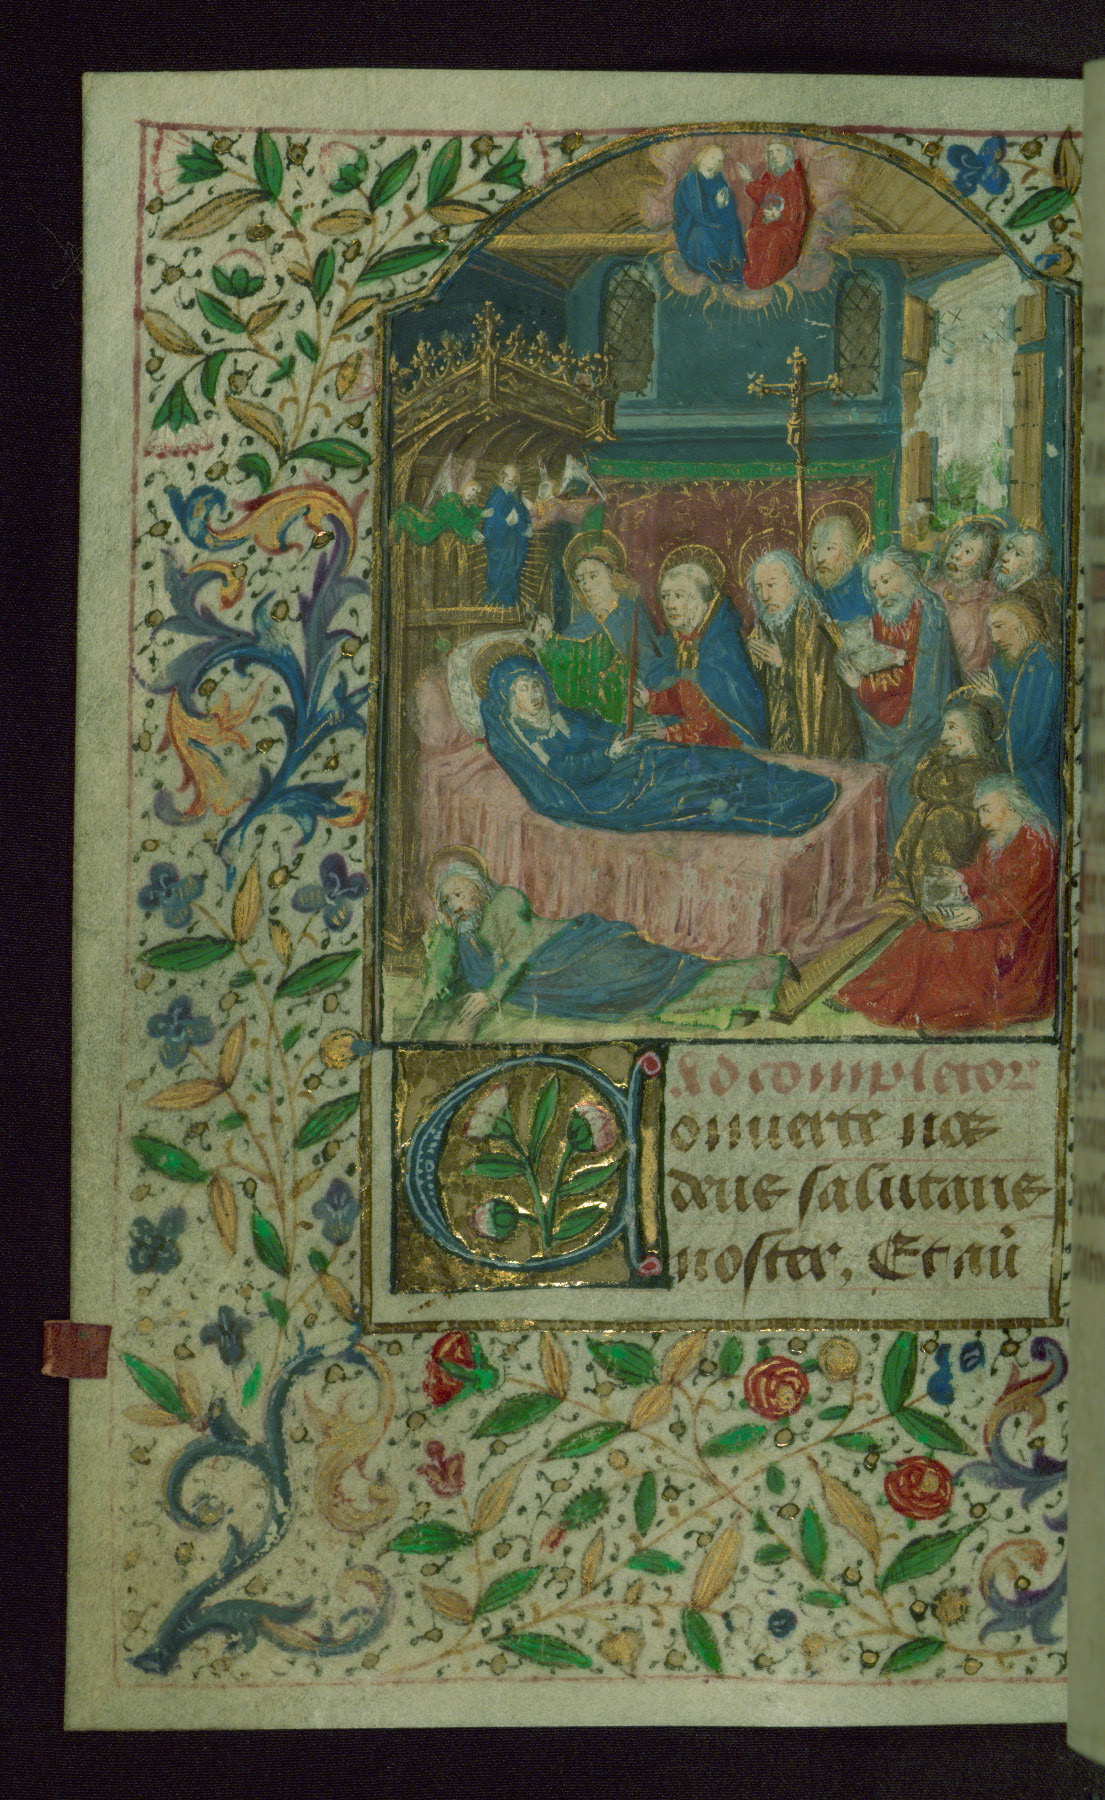 Ad completor
Conuerte nos
deus salutaris
noster, Et aū